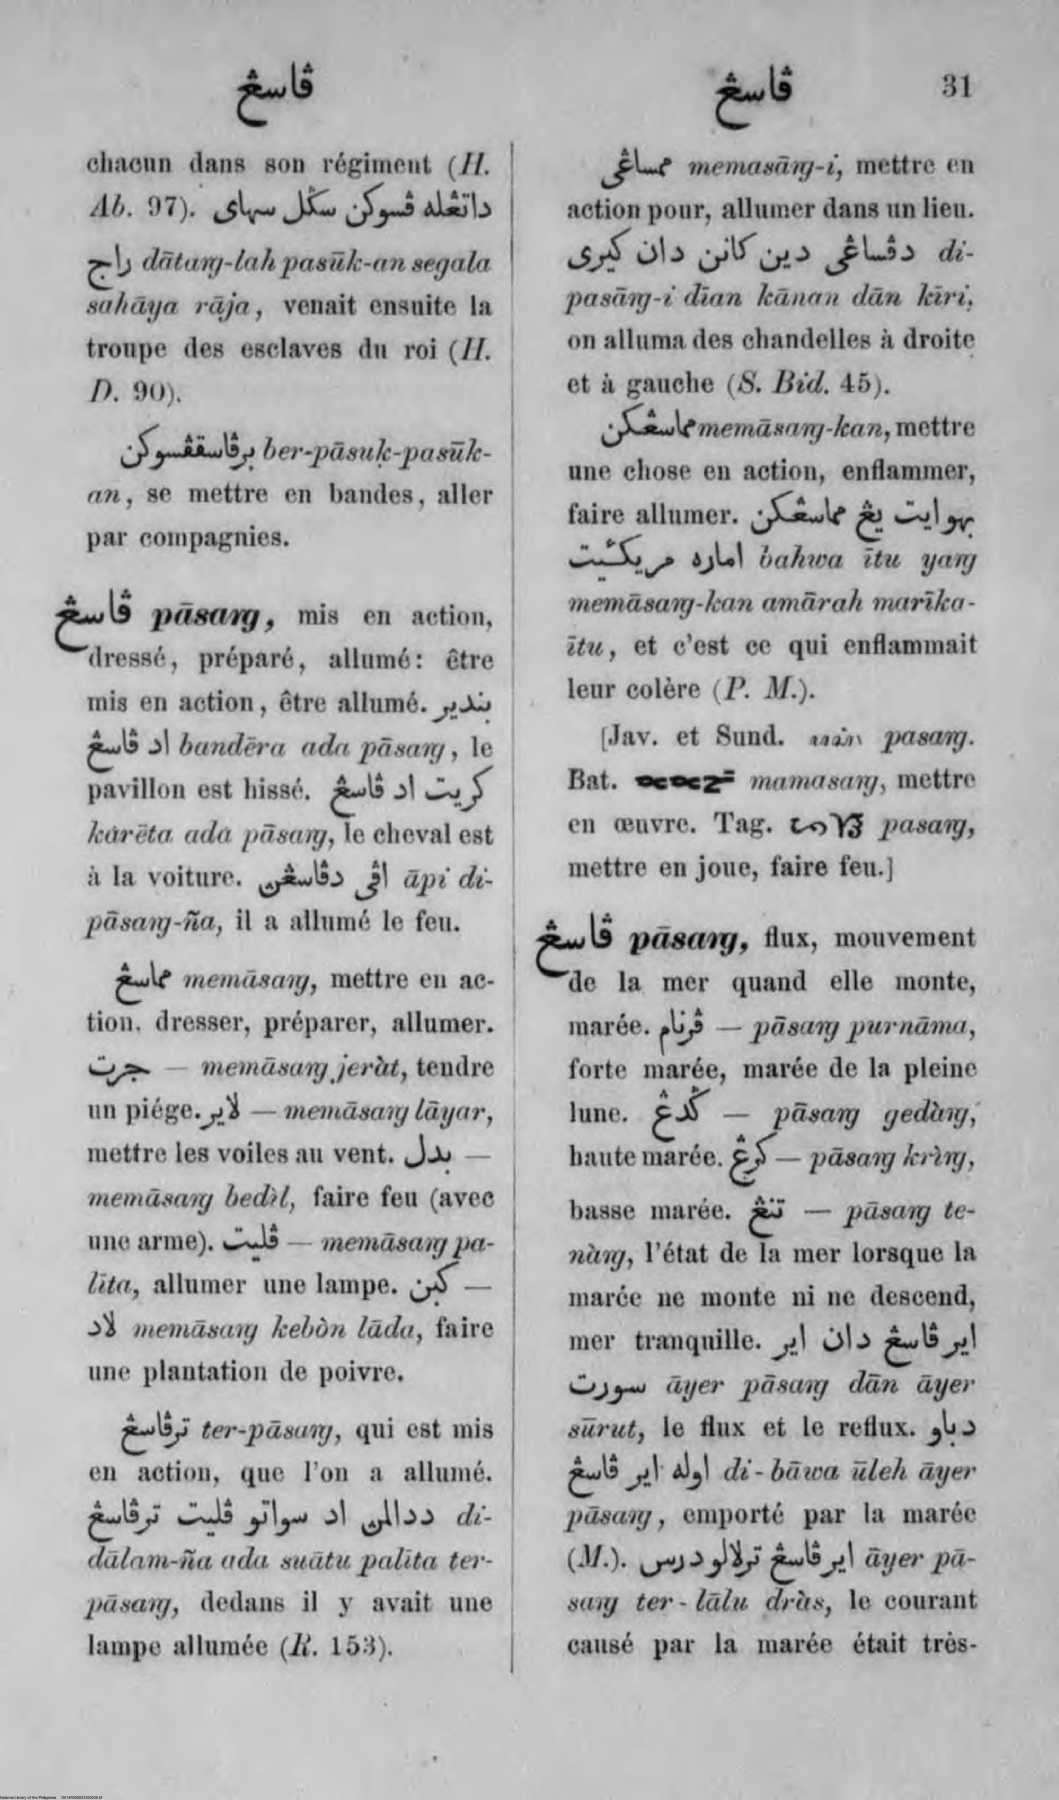 ڤاسڠ
ڤاسڠ 31
chacun dans son régiment (H.
Ab. 97). داتڠله ڤسوكن سݢل سهاي
راج dātaŋ-lah pasūk-an segala
sahāya rāja, venait ensuite la
troupe des esclaves du roi (H.
D. 90).
برڤاسقڤسوكن ber-pāsuḳ-pasūk-
an, se mettre en bandes, aller
par compagnies.
ڤاسڠ pāsaŋ, mis en action,
dressé, préparé, allumé: être
mis en action, être allumé. بندير
اد ڤاسڠ bandēra ada pāsaŋ, le
pavillon est hissé. كريت اد ڤاسڠ
karēta ada pāsaŋ, le cheval est
à la voiture. اڤي دڤاسڠن āpi di-
pāsaŋ-ña, il a allumé le feu.
مماسڠ memāsaŋ, mettre en ac-
tion, dresser, préparer, allumer.
جرت — memāsaŋ jeràt, tendre
un piége. لاير — memāsaŋ lāyar,
mettre les voiles au vent. بدل —
memāsaŋ bedìl, faire feu (avec
une arme). ڤليت — memāsaŋ pa-
līta, allumer une lampe. كبن —
لاد memāsaŋ kebòn lāda, faire
une plantation de poivre.
ترڤاسڠ ter-pāsaŋ, qui est mis
en action, que l'on a allumé.
ددالمن اد سواتو ڤليت ترڤاسڠ di-
dālam-ña ada suātu palīta ter-
pāsaŋ, dedans il y avait une
lampe allumée (R. 153).
ممساڠي memasāŋ-i, mettre en
action pour, allumer dans un lieu.
دڤساڠي دين كانن دان كيري di-
pasāŋ-i dīan kānan dān kīri,
on alluma des chandelles à droite
et à gauche (S. Bid. 45).
مماسڠكن memāsaŋ-kan, mettre
une chose en action, enflammer,
faire allumer. بهوايت يڠ مماسڠكن
اماره مريكئيت bahwa ītu yaŋ
memāsaŋ-kan amārah marīka-
ītu, et c'est ce qui enflammait
leur colère (P. M.).
[Jav. et Sund. pasaŋ.
Bat. mamasaŋ, mettre
en œuvre. Tag. pasaŋ,
mettre en joue, faire feu.]
ڤاسڠ pāsaŋ, flux, mouvement
de la mer quand elle monte,
marée. ڤرنام — pāsaŋ purnāma,
forte marée, marée de la pleine
lune. ݢدڠ — pāsaŋ gedàŋ,
haute marée. كرڠ — pāsaŋ krìŋ,
basse marée. تنڠ — pāsaŋ te-
nàŋ, l'état de la mer lorsque la
marée ne monte ni ne descend,
mer tranquille. اير ڤاسڠ دان اير
سورت āyer pāsaŋ dān āyer
sūrut, le flux et le reflux. دباو
اوله اير ڤاسڠ di-bāwa ūleh āyer
pāsaŋ, emporté par la marée
(M.). اير ڤاسڠ ترلالو درس āyer pā-
saŋ ter-lālu dràs, le courant
causé par la marée était très-